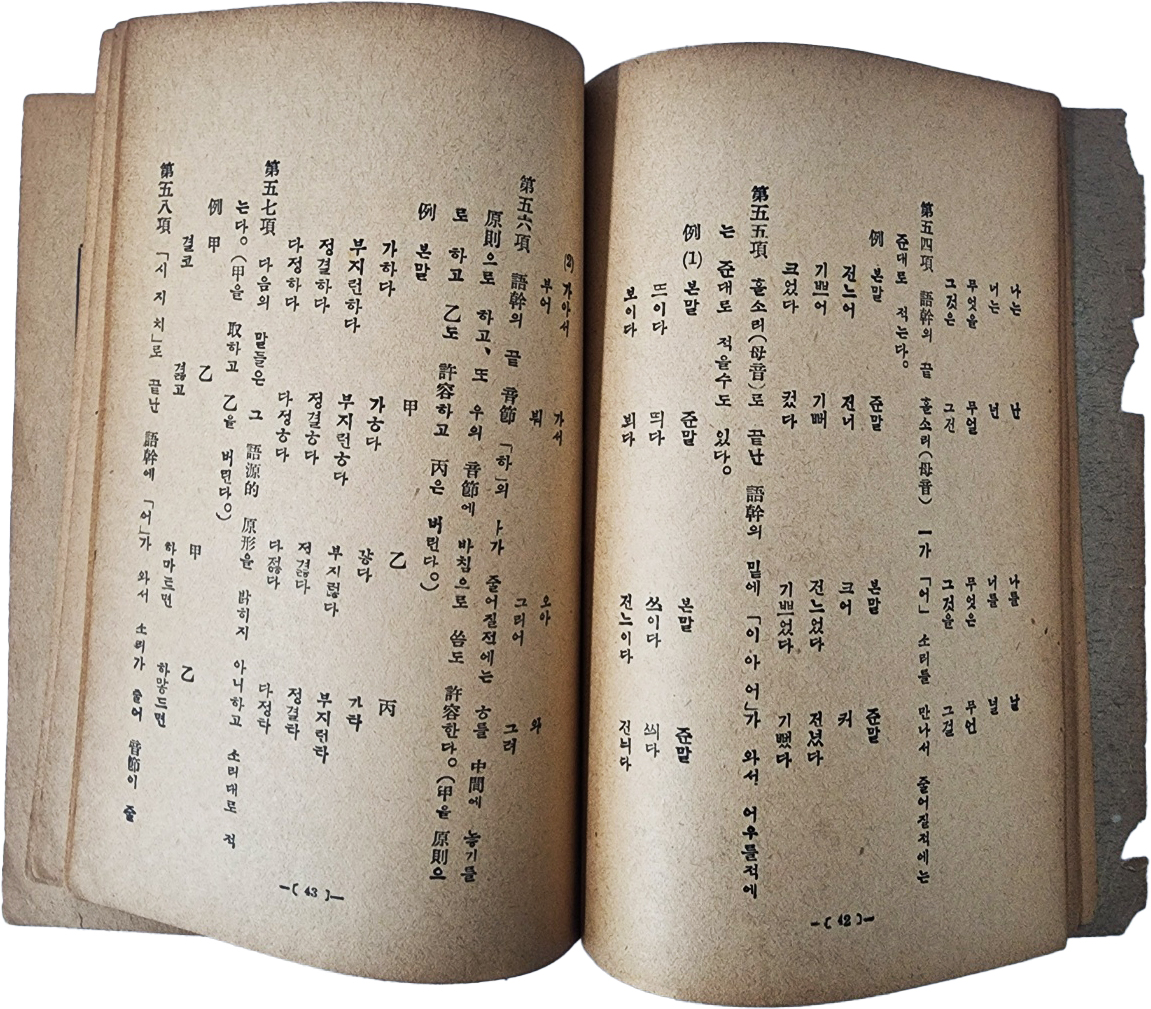 나는 난 나를 날
너는 넌 너를 널
무엇을 무얼 무엇은 무언
그것은 그건 그것을 그걸
第五四項 語幹의 끝 홀소리(母音) ㅡ가 「어」 소리를 만나서 줄어질적에는
준대로 적는다。
例 본말 준말 본말 준말
전느어 전너 크어 커
기쁘어 기뻐 전느었다 전넜다
크었다 컸다 기쁘었다 기뻤다
第五五項 홀소리(母音)로 끝난 語幹의 밑에 「이 아 어」가 와서 어우를적에
는 준대로 적을수도 있다。
例 (1) 본말 준말 본말 준말
뜨이다 띄다 쓰이다 씌다
보이다 뵈다 전느이다 전늬다
—( 42 )—
(2) 가아서 가서 오아 와
부어 붜 그리어 그려
第五六項 語幹의 끝 音節 「하」의 ㅏ가 줄어질적에는 ㅎ를 中間에 놓기를
原則으로 하고、또 우의 音節에 바침으로 씀도 許容한다。(甲을 原則으
로 하고 乙도 許容하고 丙은 버린다。)
例 본말 甲 乙 丙
가하다 가ㅎ다 갛다 가타
부지런하다 부지런ㅎ다 부지렇다 부지런타
정결하다 정결ㅎ다 정겷다 정결타
다정하다 다정ㅎ다 다졓다 다정타
第五七項 다음의 말들은 그 語源的 原形을 밝히지 아니하고 소리대로 적
는다。(甲을 取하고 乙을 버린다。)
例 甲 乙 甲 乙
결코 겷고 하마트면 하맣드면
第五八項 「시 지 치」로 끝난 語幹에 「어」가 와서 소리가 줄어 音節이 줄
—( 43 )—